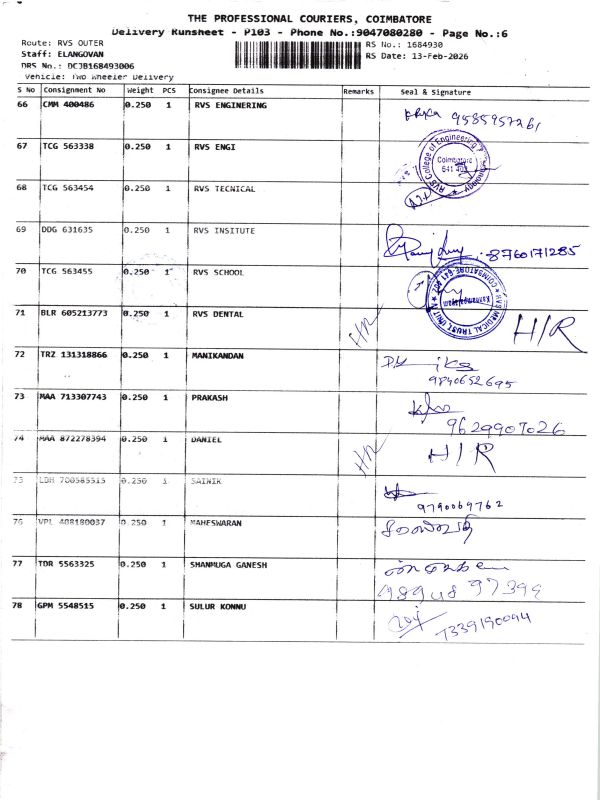 THE PROFESSIONAL COURIERS, COIMBATORE
Delivery Runsheet - P103 - Phone No.:9047080280 - Page No.:6
Route: RVS OUTER
RS No.: 1684930
Staff: ELANGOVAN
RS Date: 13-Feb-2026
DRS No.: DCJB168493006
Vehicle: Two Wheeler Delivery
S No Consignment No Weight PCS Consignee Details Remarks Seal & Signature
66 CMM 400486 0.250 1 RVS ENGINERING
9585957261
67 TCG 563338 0.250 1 RVS ENGI
RVS College of Engineering
Coimbatore
68 TCG 563454 0.250 1 RVS TECNICAL
69 DDG 631635 0.250 1 RVS INSITUTE
8760171285
70 TCG 563455 0.250 1 RVS SCHOOL
71 BLR 605213773 0.250 1 RVS DENTAL H/R H/R
72 TRZ 131318866 0.250 1 MANIKANDAN
9840652695
73 MAA 713307743 0.250 1 PRAKASH
9629907026
74 MAA 872278394 0.250 1 DANIEL H/R H/R
75 LDH 700585515 0.250 1 SAINIK
9790069762
76 VPL 408180037 0.250 1 MAHESWARAN
77 TDR 5563325 0.250 1 SHANMUGA GANESH
78 GPM 5548515 0.250 1 SULUR KONNU
7339190094